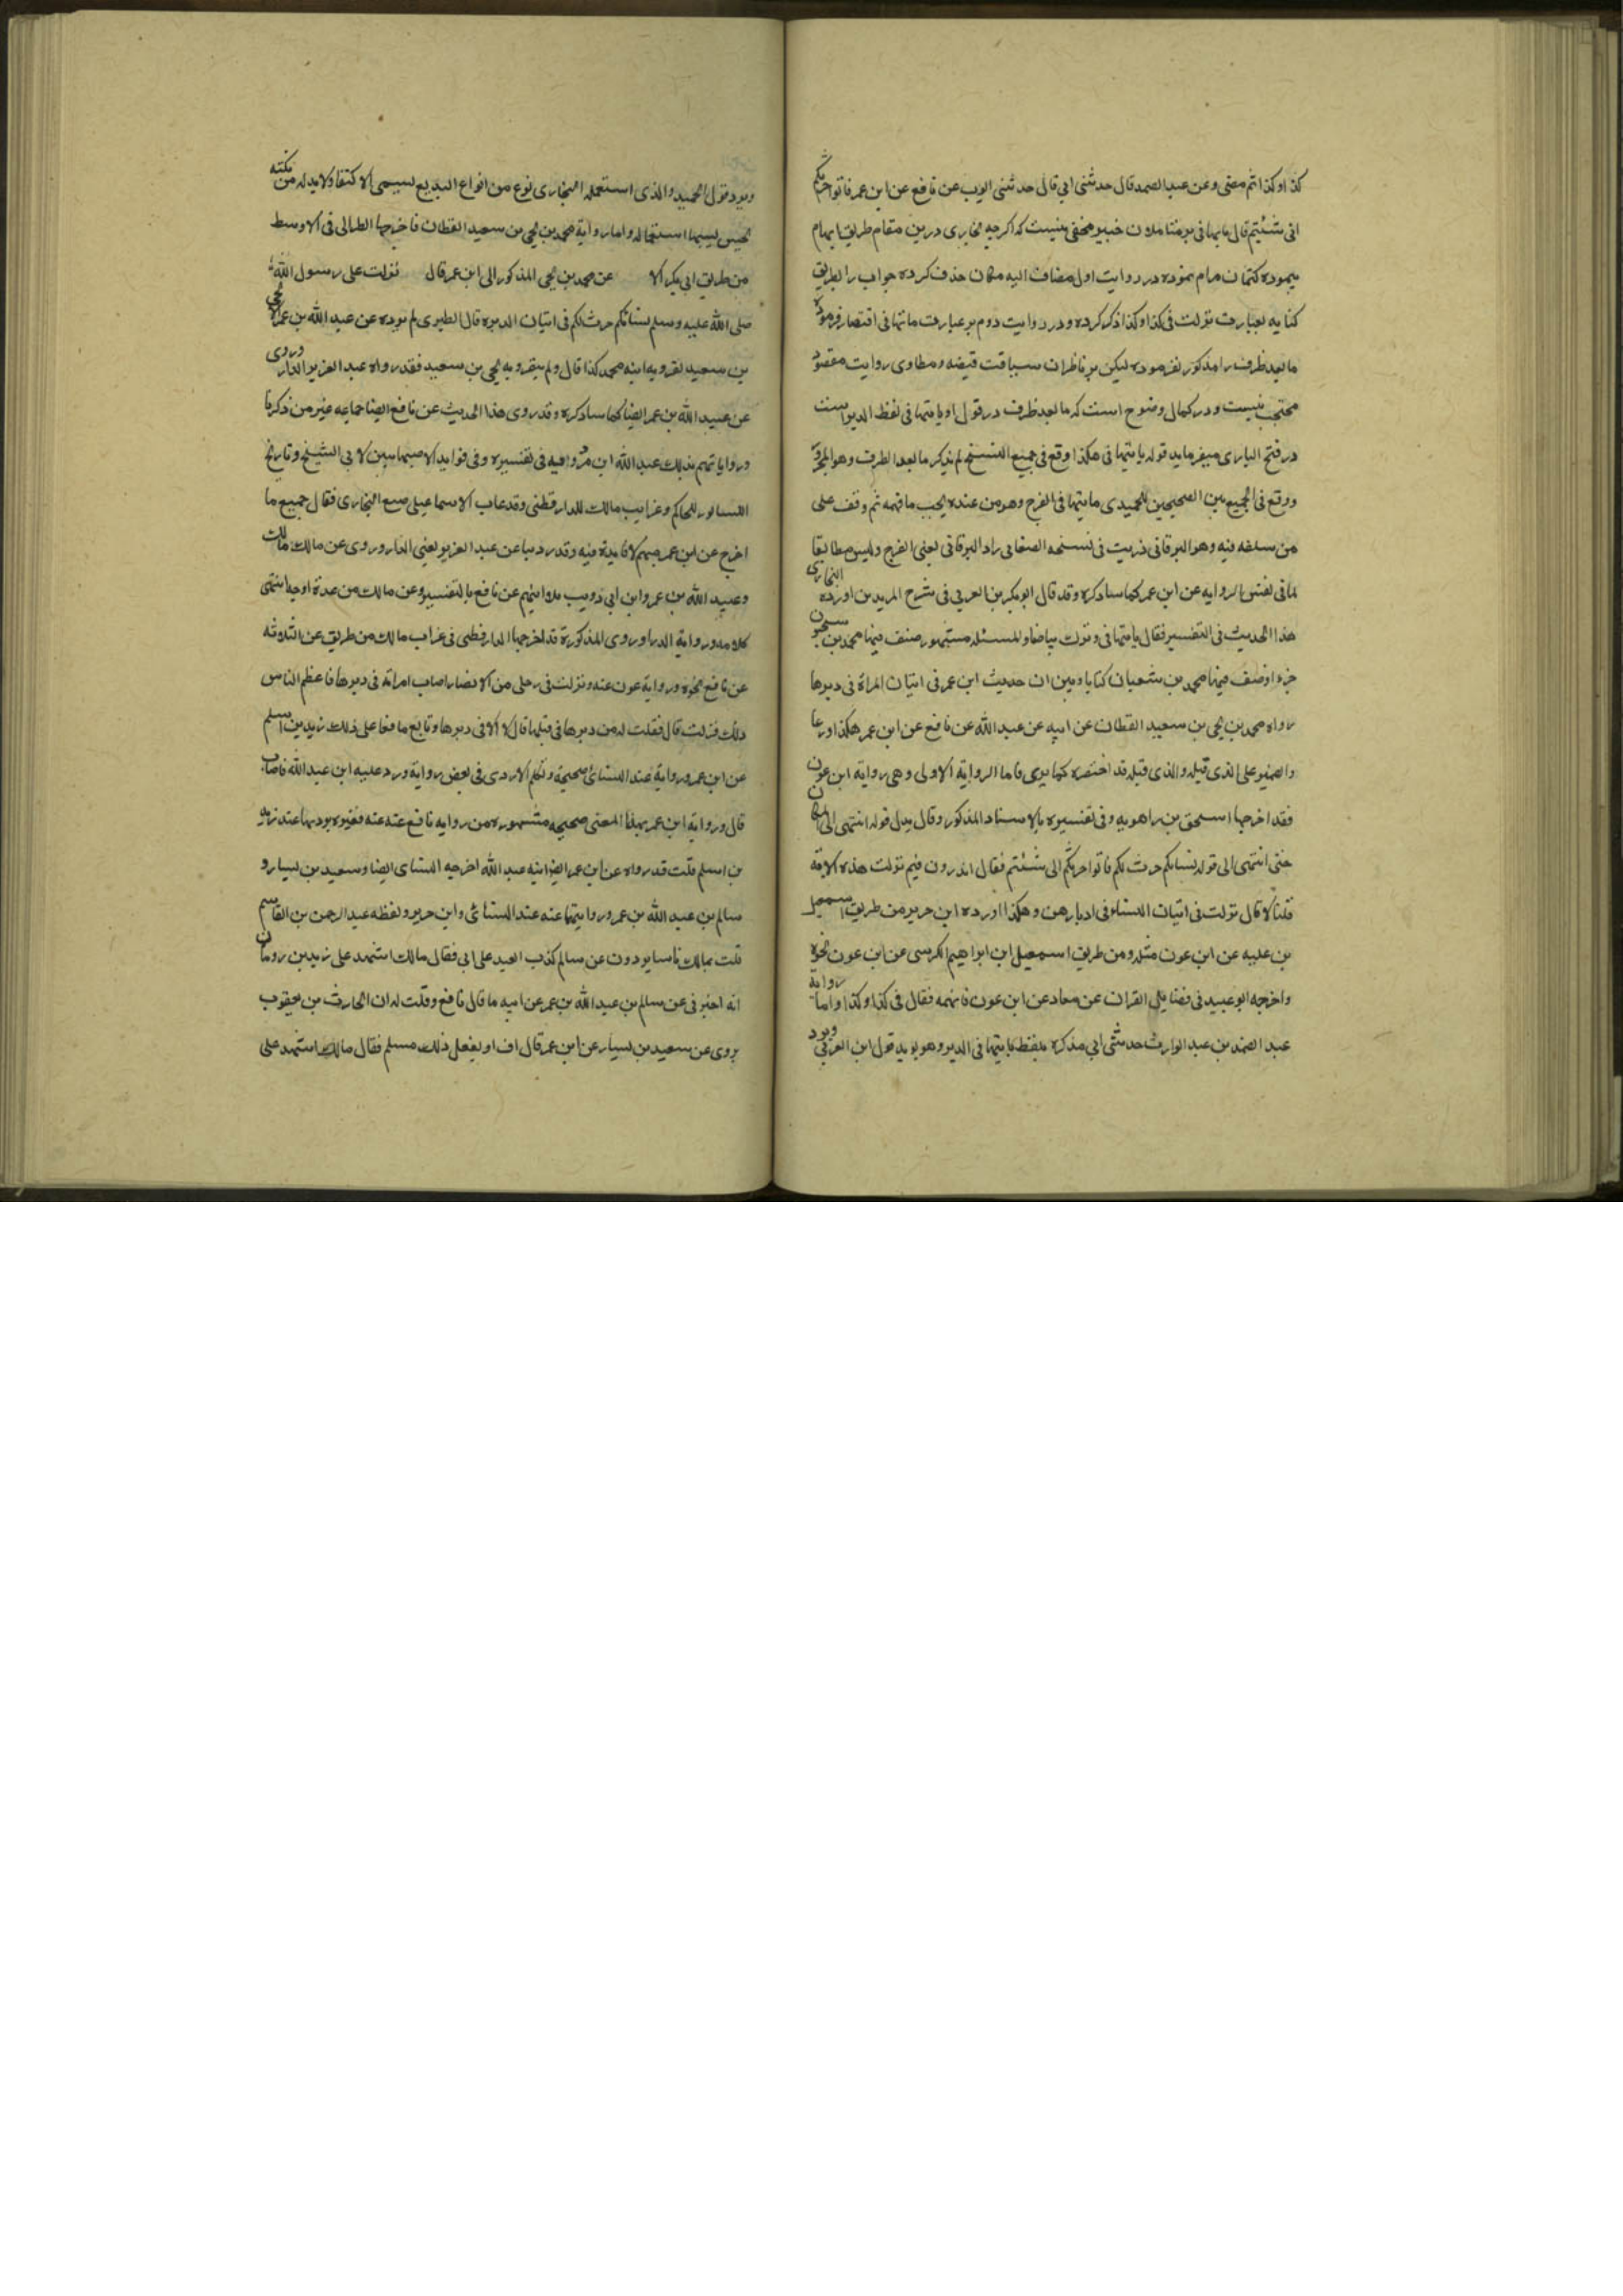 كذا وكذا ثم مضى وعن عبد الصمد قال حدثنى ابي قال حدثنى ايوب عن نافع عن ابن عمر فاتوا حرثكم
انى شئتم قال ياتيها فى بر متاملان خبير مخفى نيست كه اكرچه بخارى درين مقام طريق ابهام
پيموده كتمان مرام نموده در روايت اول مضاف اليه مكان حذف كرده جواب را بطريق
كنايه بعبارت نزلت فى كذا وكذا ذكر كرده و در روايت دوم بر عبارت ياتيها فى اقتصار فرموده
ما بعد ظرف را مذكور نفرموده ليكن بر ناظران سياقت قيضه و مطاوى روايت مقصود
محتجب نيست و در كمال وضوح است كه ما بعد ظرف در قول او ياتيها فى لفظ الدبر است
در فتح البارى ميفرمايد قوله ياتيها فى هكذا وقع فى جميع النسخ لم يذكر ما بعد الظرف وهو المجرور
ووقع فى الجمع بين الصحيحين للحميدى ياتيها فى الفرج وهو من عنده بحسب ما فهمه ثم وقف على
من سلفه فيه وهو البرقانى فرايت فى نسخه الصغانى زاد البرقانى يعنى الفرج وليس مطابقا
لما فى نفس الروايه عن ابن عمر كما ساذكره وقد قال ابو بكر بن العربي فى شرح المريدين اورد البخارى
هذا الحديث فى التفسير فقال ياتيها فى وترك بياضا والمسئله مشهوره صنف فيها محمد بن سحنون
جزءا وصنف فيها محمد بن شعبان كتابا وبين ان حديث ابن عمر فى اتيان المراة فى دبرها
رواه محمد بن يحيى بن سعيد القطان عن ابيه عن عبد الله عن نافع عن ابن عمر هكذا
والضمير على الذى قبله والذى قبله قد اختصره كما يرى فاما الرواية الاولى وهى رواية ابن عون
فقد اخرجها اسحق بن راهويه وفى تفسيره بالاسناد المذكور وقال بدل قوله انتهى الى مكان
حتى انتهى الى قوله نساؤكم حرث لكم فاتوا حرثكم انى شئتم فقال اتدرون فيم نزلت هذه الاية
قلنا لا قال نزلت فى اتيان النساء فى ادبارهن وهكذا اورده ابن جرير من طريق اسمعيل
بن عليه عن ابن عون مثله ومن طريق اسمعيل ابن ابراهيم الكرابيسى عن ابن عون نحوه
واخرجه ابو عبيد فى فضايل القران عن معاذ عن ابن عون فابهمه فقال فى كذا وكذا واما رواية
عبد الصمد بن عبد الوارث حدثنى ابي فذكره بلفظ ياتيها فى الدبر وهو يويد قول ابن العربي
ويرد قول الحميد والذى استعمله البخارى نوع من انواع البديع يسمى الاكتفا ولا بد له من نكته
يحسن بسببها استعماله واما رواية محمد بن يحيى بن سعيد القطان فاخرجها الطبرانى فى الاوسط
من طريق ابى بكر الا عن محمد بن يحيى المذكور الى ابن عمر قال نزلت على رسول الله
صلى الله عليه وسلم نسائكم حرث لكم فى اتيان الدبر قال الطبرى لم يروه عن عبد الله بن عمر الا يحيى
بن سعيد تفرد به ابنه محمد كذا قال ولم يتفرد به يحيى بن سعيد فقد رواه عبد العزيز الدراوردى
عن عبيد الله بن عمر ايضا كما ساذكره وقد روى هذا الحديث عن نافع ايضا جماعه غير من ذكرنا
وروايا تهم بذلك عند ابن مردويه فى تفسيره وفى فوايد الاصبهانيين لابى الشيخ وتاريخ
النسابور للحاكم وغرايب مالك للدارقطنى وقد عاب الاسماعيلى صنع البخارى فقال جميع ما
اخرج عن ابن عمر مبهم لا فايدة فيه وقد روينا عن عبد العزيز يعنى الدراوردى عن مالك
وعبيد الله بن عمر وابن ابى ذويب ثلاثتهم عن نافع بالتفسير وعن مالك من عدة اوجه انتهى
كلامه ورواية الدراوردى المذكورة قد اخرجها الدارقطنى فى غرايب مالك من طريق عن الثلاثه
عن نافع نحوه ورواية عون عنه ونزلت فى رجل من الانصار اصاب امراته فى دبرها فاعظم الناس
ذلك فنزلت قال فقلت له من دبرها فى قبلها قال لا الا فى دبرها وتابع نافعا على ذلك زيد بن اسلم
عن ابن عمر ورواية عند النسائى صحيحة وتكلم الازدى فى بعض رواية ورد عليه ابن عبد الله فاصاب
قال ورواية ابن عمر بهذا المعنى صحيحه مشهوره من روايه نافع عنه فغيره بودبها عند زيد
بن اسلم قلت قد رواه عن ابن عمر ايضا ابنه عبد الله اخرجه النسائى ايضا وسعيد بن يسار و
سالم بن عبد الله بن عمر وروايتها عنه عند النسائى وابن جرير ولفظه عبد الرحمن بن القاسم
قلت لمالك ناسا يروون عن سالم كذب العبد على ابى فقال مالك اشهد على زيد بن رومان
انه اخبرنى عن سالم بن عبد الله بن عمر عن ابيه ما قال نافع وقلت له ان الحارث بن يعقوب
يروى عن سعيد بن يسار عن ابن عمر قال اف او يفعل ذلك مسلم فقال مالك اشهد على